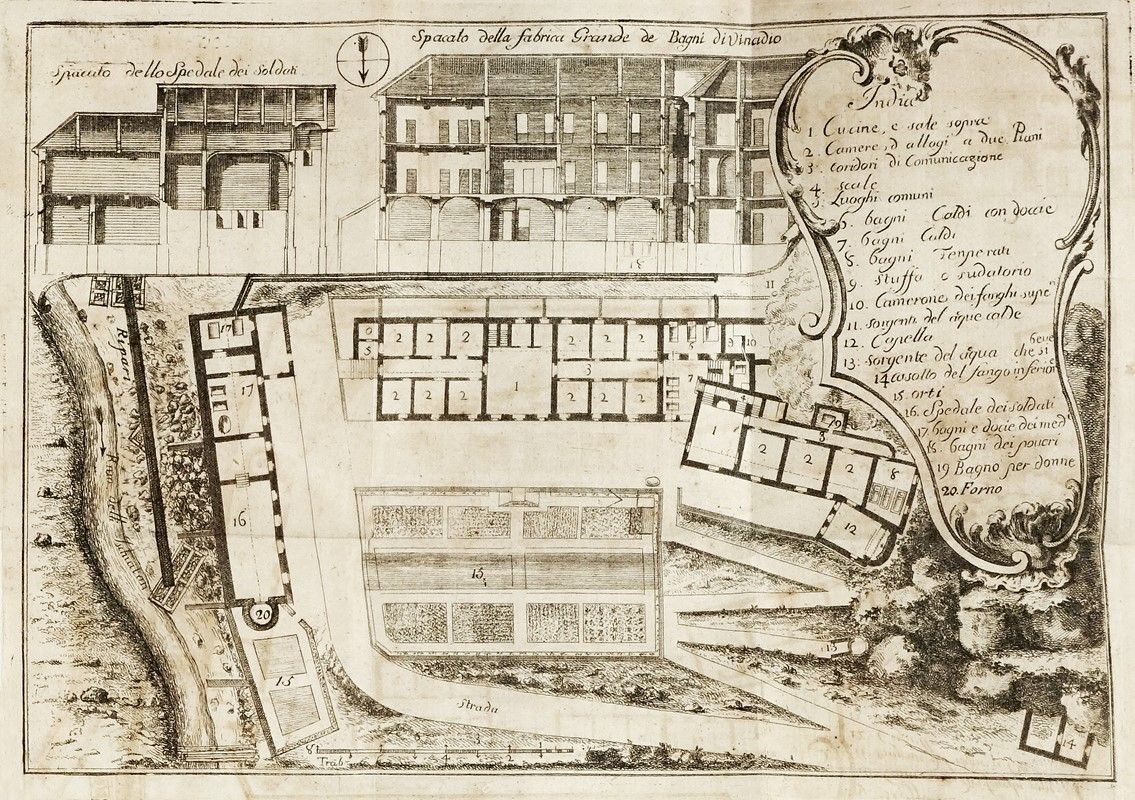 Spacato della fabrica Grande de Bagni di Vinadio
Spacato dello Spedale dei Soldati
Indice
1 Cucine, e sale sopra
2. Camere, d allogi a due Piani
3. coridori di Comunicazione
4. scale
5. Luoghi comuni
6. bagni Caldi con doccie
7. bagni Caldi
8. bagni Temperati
9. stuffa o sudatorio
10. Camerone dei fanghi supe
11. sorgenti del aque calde
12. Capella
13. sorgente del aqua che si beve
14 casotto del fango inferior
15. orti
16. Spedale dei soldati
17 bagni e docie dei med
18. bagni dei poveri
19 Bagno per donne
20. Forno
18
11
Repari
17
17
16
20
15
6
5
2
2
2
2
2
2
2
2
2
2
2
2
1
3
6
9
10
7
1
2
2
2
8
19
8
12
15
13
14
Strada
Trab